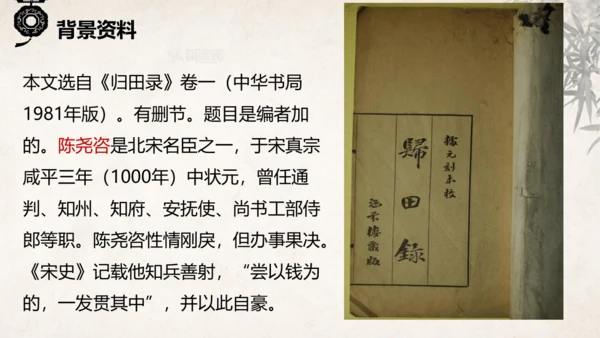 背景资料
本文选自《归田录》卷一（中华书局
1981年版）。有删节。题目是编者加
的。陈尧咨是北宋名臣之一，于宋真宗
咸平三年（1000年）中状元，曾任通
判、知州、知府、安抚使、尚书工部侍
郎等职。陈尧咨性情刚戾，但办事果决。
《宋史》记载他知兵善射，“尝以钱为
的，一发贯其中”，并以此自豪。
據元刻本校
歸田錄
涵芬樓藏版